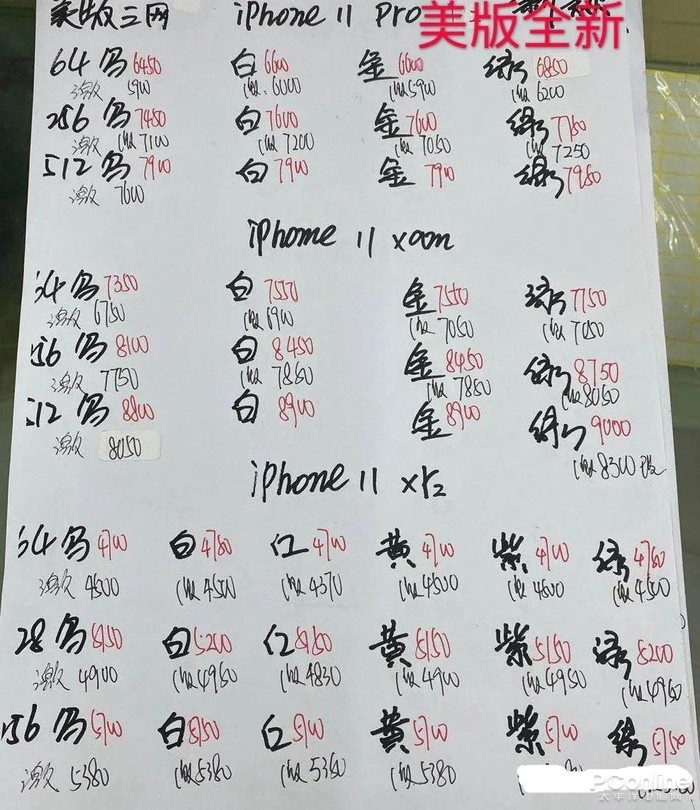 美版三网 iPhone 11 Pro
美版全新
64 写 6450 白 6600 金 6600 绿 6850
激 5900 激 6000 激 5900 激 6200
256 写 7450 白 7600 金 7600 绿 7750
激 7100 激 7200 激 7050 激 7250
512 写 7900 白 7900 金 7900 绿 7950
激 7600
iPhone 11 xoom
64 写 7350 白 7550 金 7550 绿 7750
激 6750 激 6900 激 7050 激 7050
56 写 8100 白 8450 金 8450 绿 8750
激 7750 激 7850 激 7850 激 8050
512 写 8800 白 8900 金 8900 绿 9000
激 8050 激 8300
iPhone 11 xr2
64 写 4700 白 4780 红 4700 黄 4700 紫 4700 绿 4750
激 4500 激 4500 激 4370 激 4500 激 4500 激 4500
28 写 5150 白 5200 红 5150 黄 5150 紫 5150 绿 5200
激 4900 激 4950 激 4830 激 4900 激 4950 激 4950
56 写 5700 白 5750 白 5700 黄 5700 紫 5700 绿 5750
激 5380 激 5380 激 5350 激 5380
PConline
太平洋电脑网